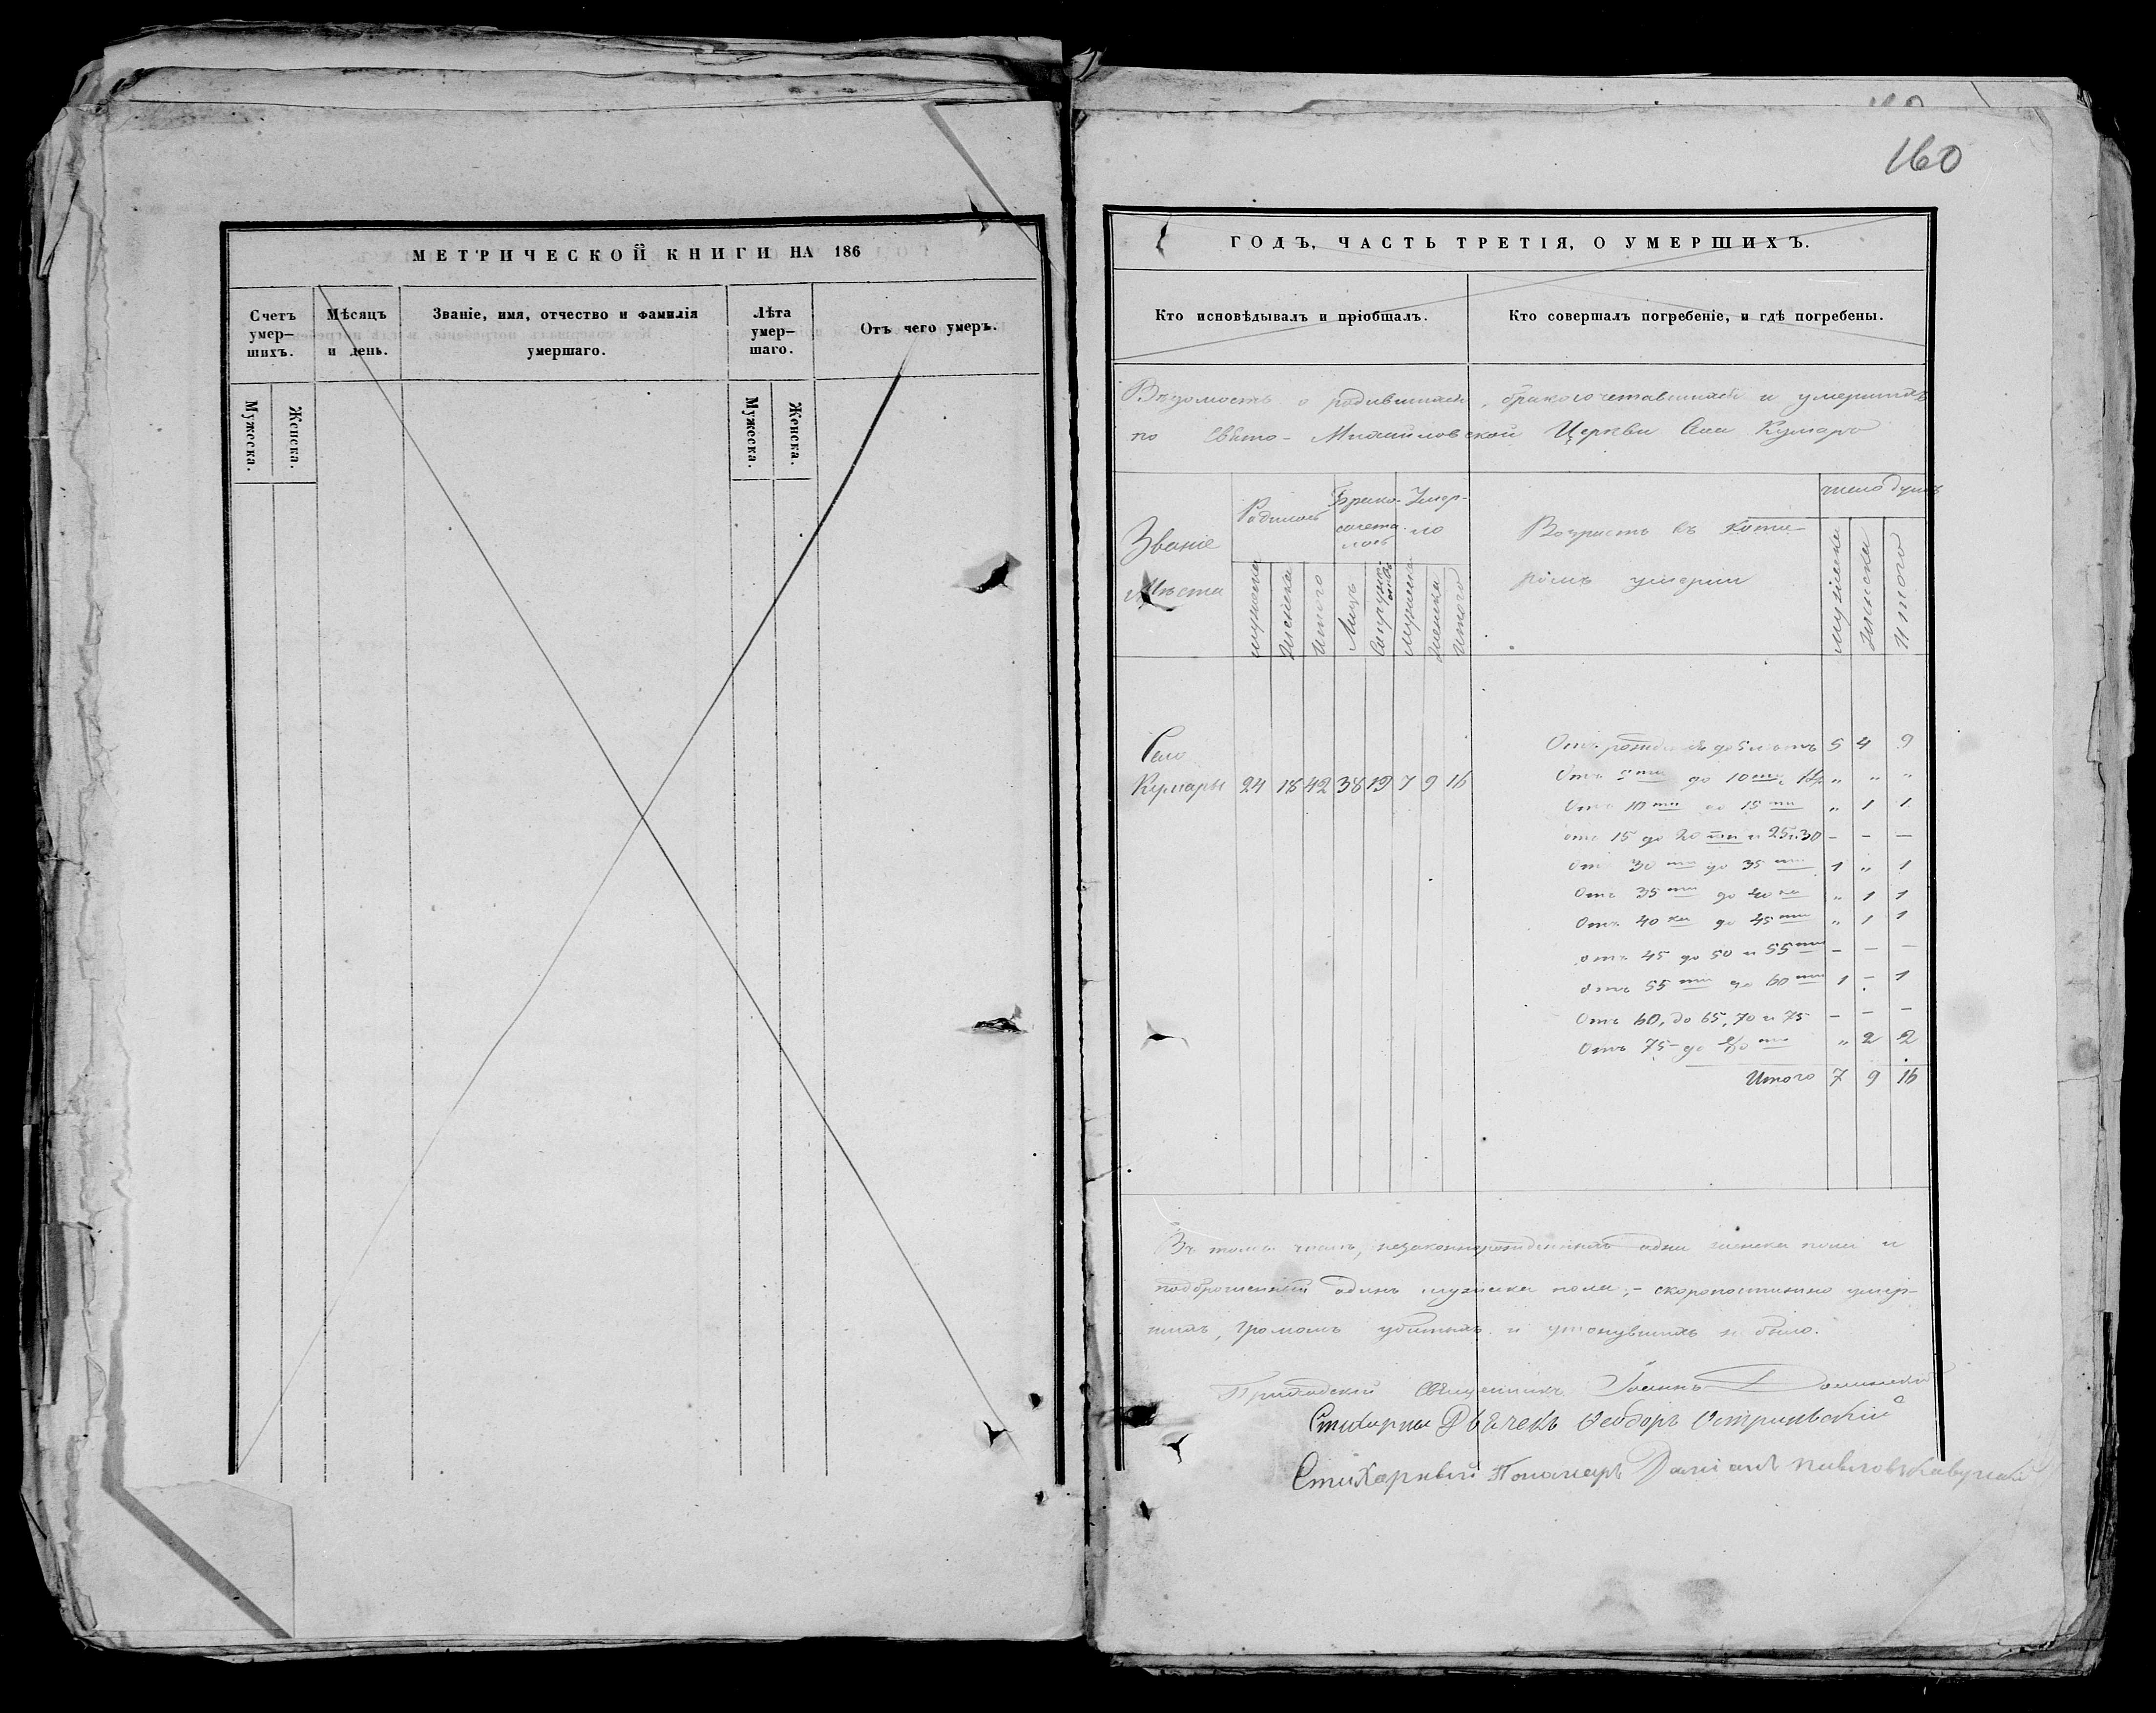 МЕТРИЧЕСКОЙ КНИГИ НА 186
Счетъ умер-шихъ.
Мѣсяцъ и день.
Званіе, имя, отчество и фамилія умершаго.
Лѣта умер-шаго.
Отъ чего умеръ.
Мужеска.
Женска.
Мужеска.
Женска.
160
ГОДЪ, ЧАСТЬ ТРЕТІЯ, О УМЕРШИХЪ.
Кто исповѣдывалъ и пріобщалъ.
Кто совершалъ погребеніе, и гдѣ погребены.
Вѣдомость о родившихся, бракосочетавшихся и умершихъ
по Свято-Михайловской Церкви Села Кумаръ
Званіе Мѣста
Родилось
Брако-сочета-лось
Умер-ло
Возрастъ въ кото-ромъ умерли
число душъ
мужеска
женска
итого
Лицъ
Супружествъ
мужеска
женска
итого
мужеска
женска
итого
Отъ рожденія до 5 лѣтъ 5 4 9
Село
Кумары 24 18 42 38 19 7 9 16
Отъ 5ти до 10ти " " "
Отъ 10ти до 15ти " 1 1
отъ 15 до 20ти и 25 и 30 - - -
Отъ 30ти до 35ти 1 " 1
Отъ 35ти до 40ка " 1 1
Отъ 40ка до 45ти " 1 1
отъ 45 до 50 и 55ти - - -
отъ 55ти до 60ти 1 - 1
Отъ 60, до 65, 70 и 75 - - -
Отъ 75 - до 80ти " 2 2
Итого 7 9 16
Въ томъ числѣ, незаконнорожденныхъ одна женска пола и
подброшенный одинъ мужеска пола, - скоропостижно умер-
шихъ, громомъ убитыхъ и утонувшихъ не было.
Приходскій Священникъ Іоаннъ
Стихарны Дьячекъ Ѳеодоръ Остриевскій
Стихарный Пономаръ Даміанъ Павловъ